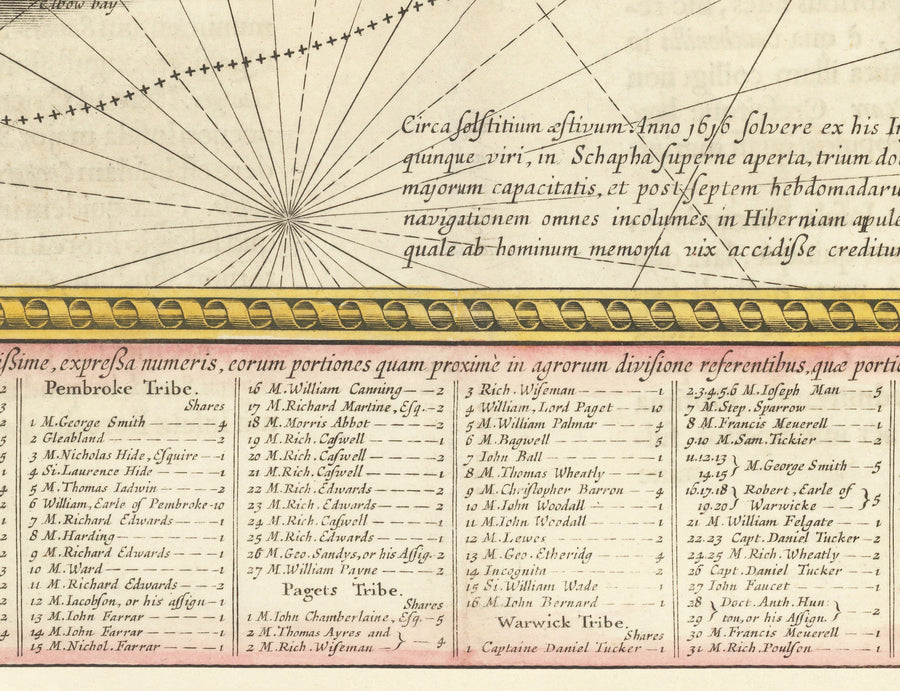 Elbow bay
Circa ſolſtitium æſtivum Anno 1616 ſolvere ex his
quinque viri, in Schapha ſuperne aperta, trium
majorum capacitatis, et post ſeptem
navigationem omnes incolumes in Hiberniam
quale ab hominum memoria vix accidiſſe
expreſſa numeris, eorum portiones quam proximè in agrorum diviſione referentibus, quæ
Pembroke Tribe.
Shares
1 M. George Smith — 4
2 Gleabland — 2
3 M. Nicholas Hide, Eſquire — 1
4 Si. Laurence Hide — 1
5 M. Thomas Iadwin — 2
6 William, Earle of Pembroke - 10
7 M. Richard Edwards — 1
8 M. Harding — 1
9 M. Richard Edwards — 1
10 M. Ward — 1
11 M. Richard Edwards — 2
12 M. Iacobſon, or his aſſign — 1
13 M. Iohn Farrar — 1
14 M. Iohn Farrar — 1
15 M. Nichol. Farrar — 1
16 M. William Canning — 2
17 M. Richard Martine, Eſq. - 2
18 M. Morris Abbot — 2
19 M. Rich. Caſwell — 1
20 M. Rich. Caſwell — 2
21 M. Rich. Caſwell — 1
22 M. Rich. Edwards — 2
23 M. Rich. Edwards — 2
24 M. Rich. Caſwell — 1
25 M. Rich. Edwards — 1
26 M. Geo. Sandys, or his Aſſig. 2
27 M. William Payne — 2
Pagets Tribe.
Shares
1 M. Iohn Chamberlaine, Eſq. - 5
2 M. Thomas Ayres and
2 M. Rich. Wiſeman — } - 4
3 Rich. Wiſeman — 1
4 William, Lord Paget — 10
5 M. William Palmar — 4
6 M. Bagwell — 5
7 Iohn Ball — 1
8 M. Thomas Wheatly — 1
9 M. Chriſtopher Barron — 4
10 M. Iohn Woodall — 1
11 M. Iohn Woodall — 1
12 M. Lewes — 2
13 M. Geo. Etheridg — 4
14 Incognita — 2
15 Si. William Wade — 1
16 M. Iohn Bernard — 1
Warwick Tribe.
Shares
1 Captaine Daniel Tucker — 1
2.3.4.5.6 M. Ioſeph Man — 5
7 M. Step. Sparrow — 1
8 M. Francis Meuerell — 1
9.10 M. Sam. Tickier — 2
11.12.13
14.15 } M. George Smith — 5
16.17.18 } Robert, Earle of
19.20 } Warwicke — } 5
21 M. William Felgate — 1
22.23 Capt. Daniel Tucker - 2
24.25 M. Rich. Wheatly — 2
26 Capt. Daniel Tucker — 1
27 Iohn Faucet — 1
28 } Doct. Anth. Hun
29 } ton, or his Aſſign. } - 2
30 M. Francis Meuerell — 1
31 M. Rich. Poulſon — 1